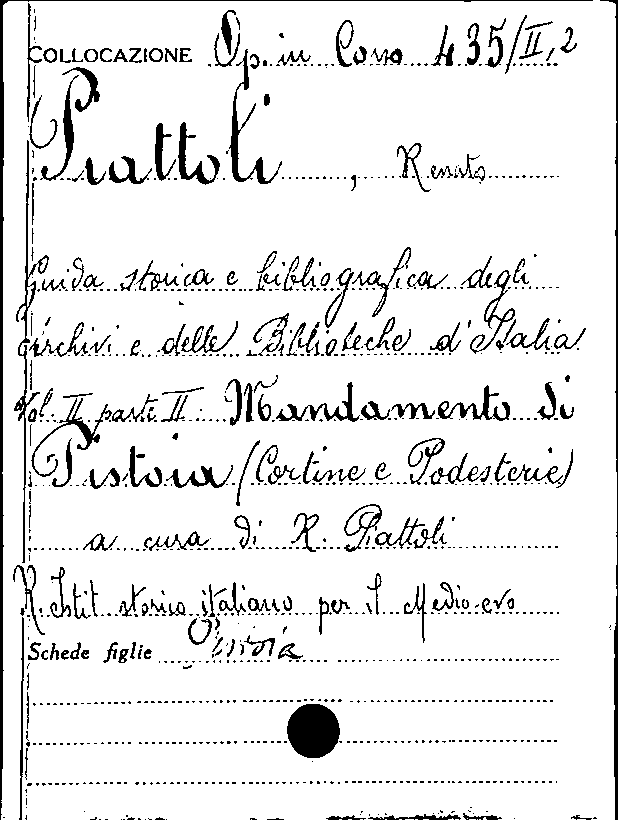 COLLOCAZIONE Op. in Corso 435/II, 2
Piattoli, Renato
Guida storica e bibliografica degli
Archivi e delle Biblioteche d'Italia
Vol. II parte II. Mandamento di
Pistoia (Cortine e Podesterie)
a cura di R. Piattoli
R. Istit. storico italiano per il Medio-evo
Schede figlie Pistoia